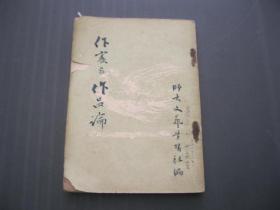 作家与作品論
师大文艺学习社编